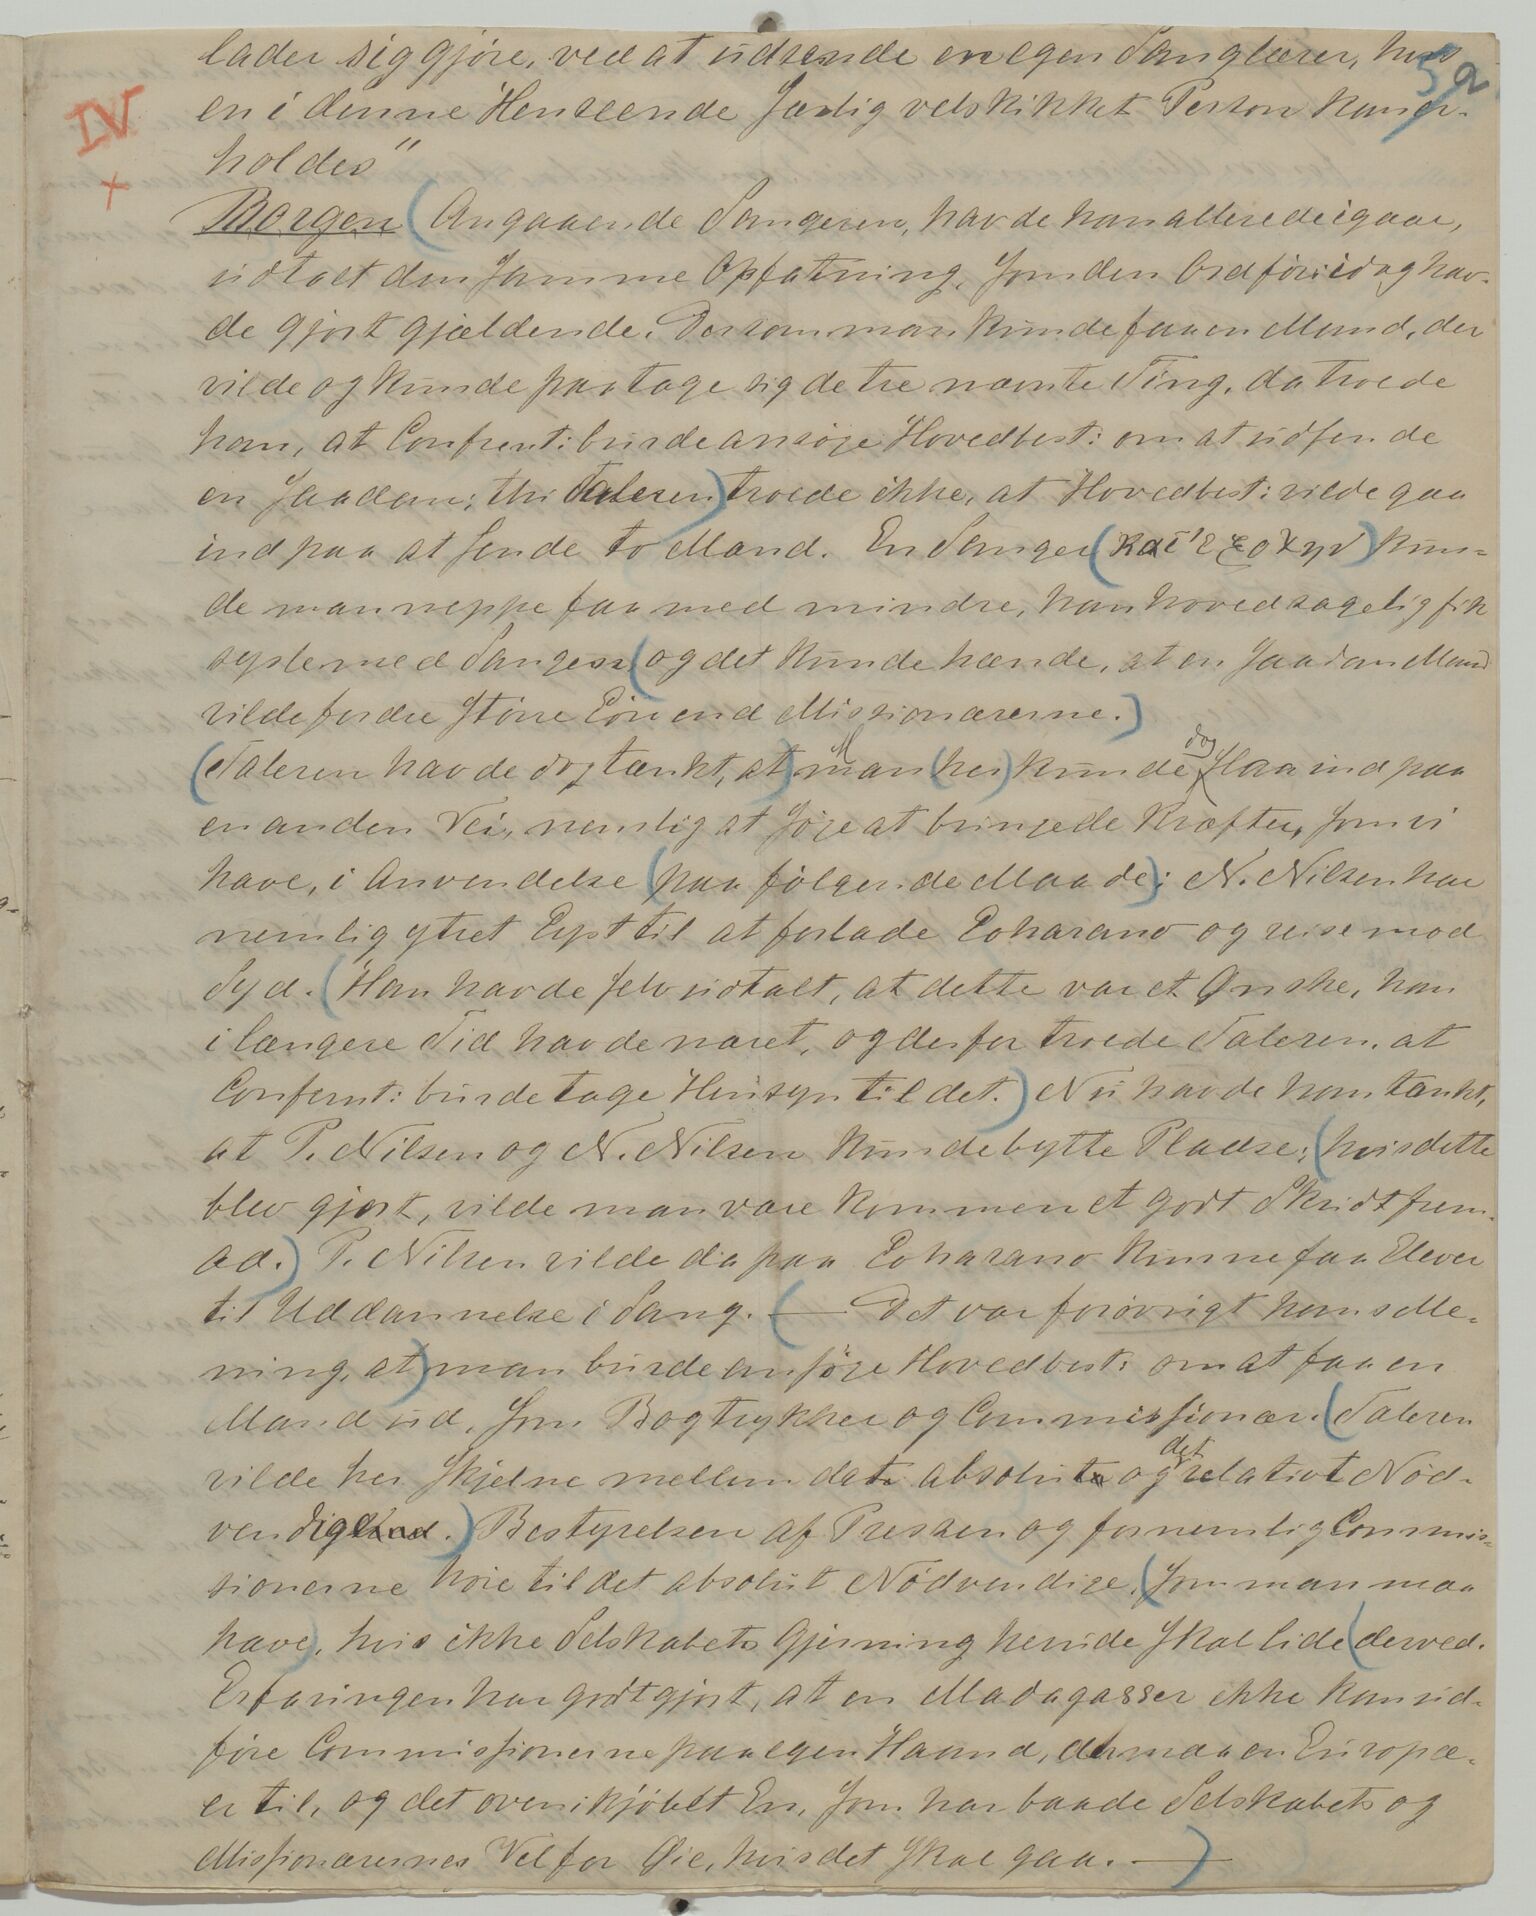 lader sig gjöre, ved at udsende en egen Sanglærer, hvis
52
en i denne Henseende særlig velskikket Person kan er-
IV
holdes"
+
Borgen (Angaaende Sangeren, havde han allerede igaar,
udtalt den samme Opfatning, som den Ordför: idag hav-
de gjort gjældende. Dersom man kunde faa en Mand, der
vilde og kunde paatage sig de tre nævnte Ting, da troede
han, at Confrent: burde ansöge Hovedbest: om at udsende
en saadan; thi Taleren) troede ikke, at Hovedbest: vilde gaa
ind paa at sende to Mand. En Sanger (κατ' εξοχην) kun-
de man neppe faa med mindre, han hovedsagelig fik
sysle med Sangen (og det kunde hænde, at en saadan Mand
vilde fordre större Lön end Missionærerne.)
(Taleren havde dog tænkt, at) man (her) kunde dog slaa ind paa
en anden Vei, nemlig at söge at bringe de Kræfter, som vi
have, i Anvendelse (paa fölgende Maade): N. Nilsen har
nemlig ytret Lyst til at forlade Loharano og reise mod
Syd. (Han havde selv udtalt, at dette var et Ønske, han
i længere Tid havde næret, og derfor troede Taleren, at
Confernt: burde tage Hensyn til det.) Nu havde han tænkt,
at P. Nilsen og N. Nilsen kunde bytte Pladse; (hvis dette
blev gjort, vilde man være kommen et godt Skridt frem-
ad.) P. Nilsen vilde da paa Loharano kunne faa Elever
til Uddannelse i Sang. (— Det var forövrigt hans Me-
ning, at) man burde ansöge Hovedbest: om at faa en
Mand ud, som Bogtrykker og Commissionær. (Taleren
vilde her skjelne mellem det absolute og det relativt Nöd-
vendige.) Bestyrelsen af Pressen og fornemlig Commis-
sionerne höre til det absolut Nödvendige, (som man maa
have), hvis ikke Selskabets Gjerning herude skal lide (derved.
Erfaringen har godtgjort, at en Madagasser ikke kan ud-
före Commissionerne paa egen Haand, der maa en Europæ-
er til, og det ovenikjöbet En, som har baade Selskabets og
Missionærernes Vel for Øie, hvis det skal gaa. —)